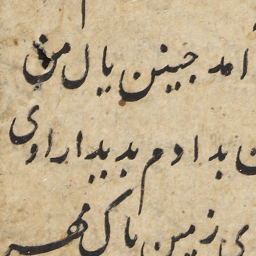 امد جبینن یال من
ن بدادم بدیدار اوی
ی زمین پاک مهر